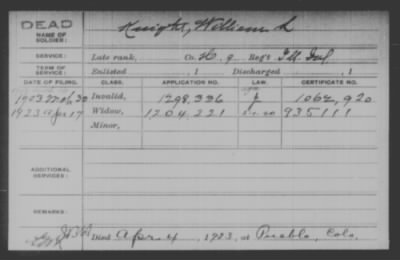 DEAD
NAME OF SOLDIER: Knight, William L
SERVICE: Late rank, Co. H, 9 Reg't
TERM OF SERVICE: Enlisted , 1 Discharged , 1
DATE OF FILING. CLASS. APPLICATION NO. LAW. CERTIFICATE NO.
1903 30 Invalid, 1298,336 1062,920
1923 Apr 17 Widow, 1204,221 935111
Minor,
ADDITIONAL SERVICES:
REMARKS:
Died Apr 4, 1923, at Pueblo, Colo.